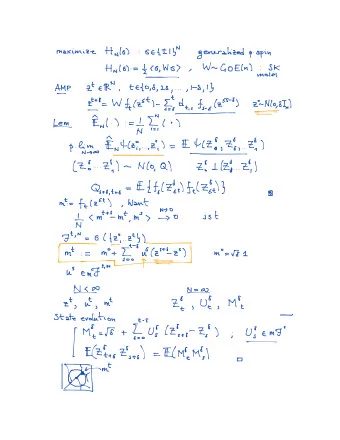 maximize H_N(σ) : σ∈{±1}^N generalized p spin
H_N(σ) = ½ <σ, Wσ>, W~GOE(n) : SK model
AMP z^t ∈ R^N, t∈{0,δ,2δ, ..., 1-δ,1}
z^{t+δ} = W f_t(z^{≤t}) - Σ d_{t,s} f_{s-δ}(z^{≤s-δ}) z^0~N(0,δI_n)
Lem Ê_N( ) = 1/N Σ_{i=1}^N (·)
p lim_{N→∞} Ê_N ψ(z^0, ..., z^1) = E ψ(Z_0^δ, Z_δ^δ, Z_1^δ)
(Z_δ^δ ... Z_1^δ) ~ N(0, Q) Z_0^δ ⊥ (Z_δ^δ ... Z_1^δ)
Q_{s+δ,t+δ} = E{f_s(Z_≤^δ) f_t(Z_≤^δ)}
m^t = f_t(z^{≤t}), Want
1/N <m^{t+δ} - m^t, m^s> → 0 s≤t
F^{t,N} = σ({z^0, ..., z^t})
m^t := m^0 + Σ_{s=0}^{t-δ} u^s (z^{s+δ} - z^s) m^0 = √δ 1
u^s ∈ m F^{s,N}
N<∞ N=∞
z^t, u^t, m^t Z_t^δ, U_t^δ, M_t^δ
State evolution
M_t^δ = √δ + Σ_{s=0}^{t-δ} U_s^δ (Z_{s+δ}^δ - Z_s^δ), U_s^δ ∈ m F^s
E(Z_{t+δ}^δ Z_{s+δ}^δ) = E(M_t^δ M_s^δ)
m^t